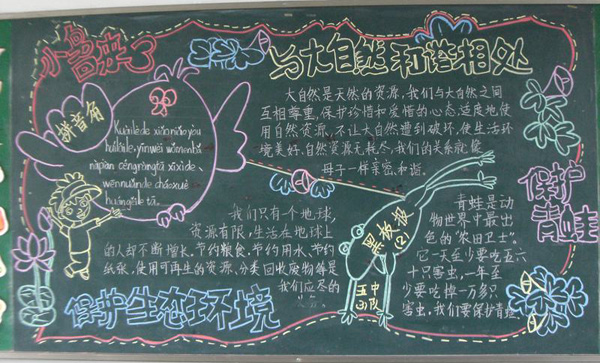 小鸟来了
与大自然和谐相处
拼音角
Kuàilè de xiǎoniǎo yòu
huílái le, yīnwèi wǒmen nà
nà piàn céngjīng tā xīxī de、
wēnnuǎn de cháoxué
huángjiē tā.
大自然是天然的资源,我们与大自然之间
互相尊重,保护珍惜和爱惜的心态,适度地使
用自然资源,不让大自然遭到破坏,使生活环
境美好,自然资源无耗尽,我们的关系就像
母子一样亲密,和谐。
保护
青蛙
我们只有一个地球,
资源有限,生活在地球上
的人却不断增长。节约粮食、节约用水、节约
纸张、使用可再生的资源、分类回收废物等是
我们应尽的
保护生态环境
黑板报
(2)
五中
中队
青蛙是动
物世界中最出
色的“农田卫士”。
它一天至少要吃五六
十只害虫,一年至
少要吃掉一万多只
害虫,我们要保护青蛙